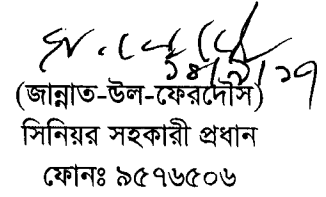 ১৪/৯/১৭
(জান্নাত-উল-ফেরদৌস)
সিনিয়র সহকারী প্রধান
ফোনঃ ৯৫৭৬৫০৬